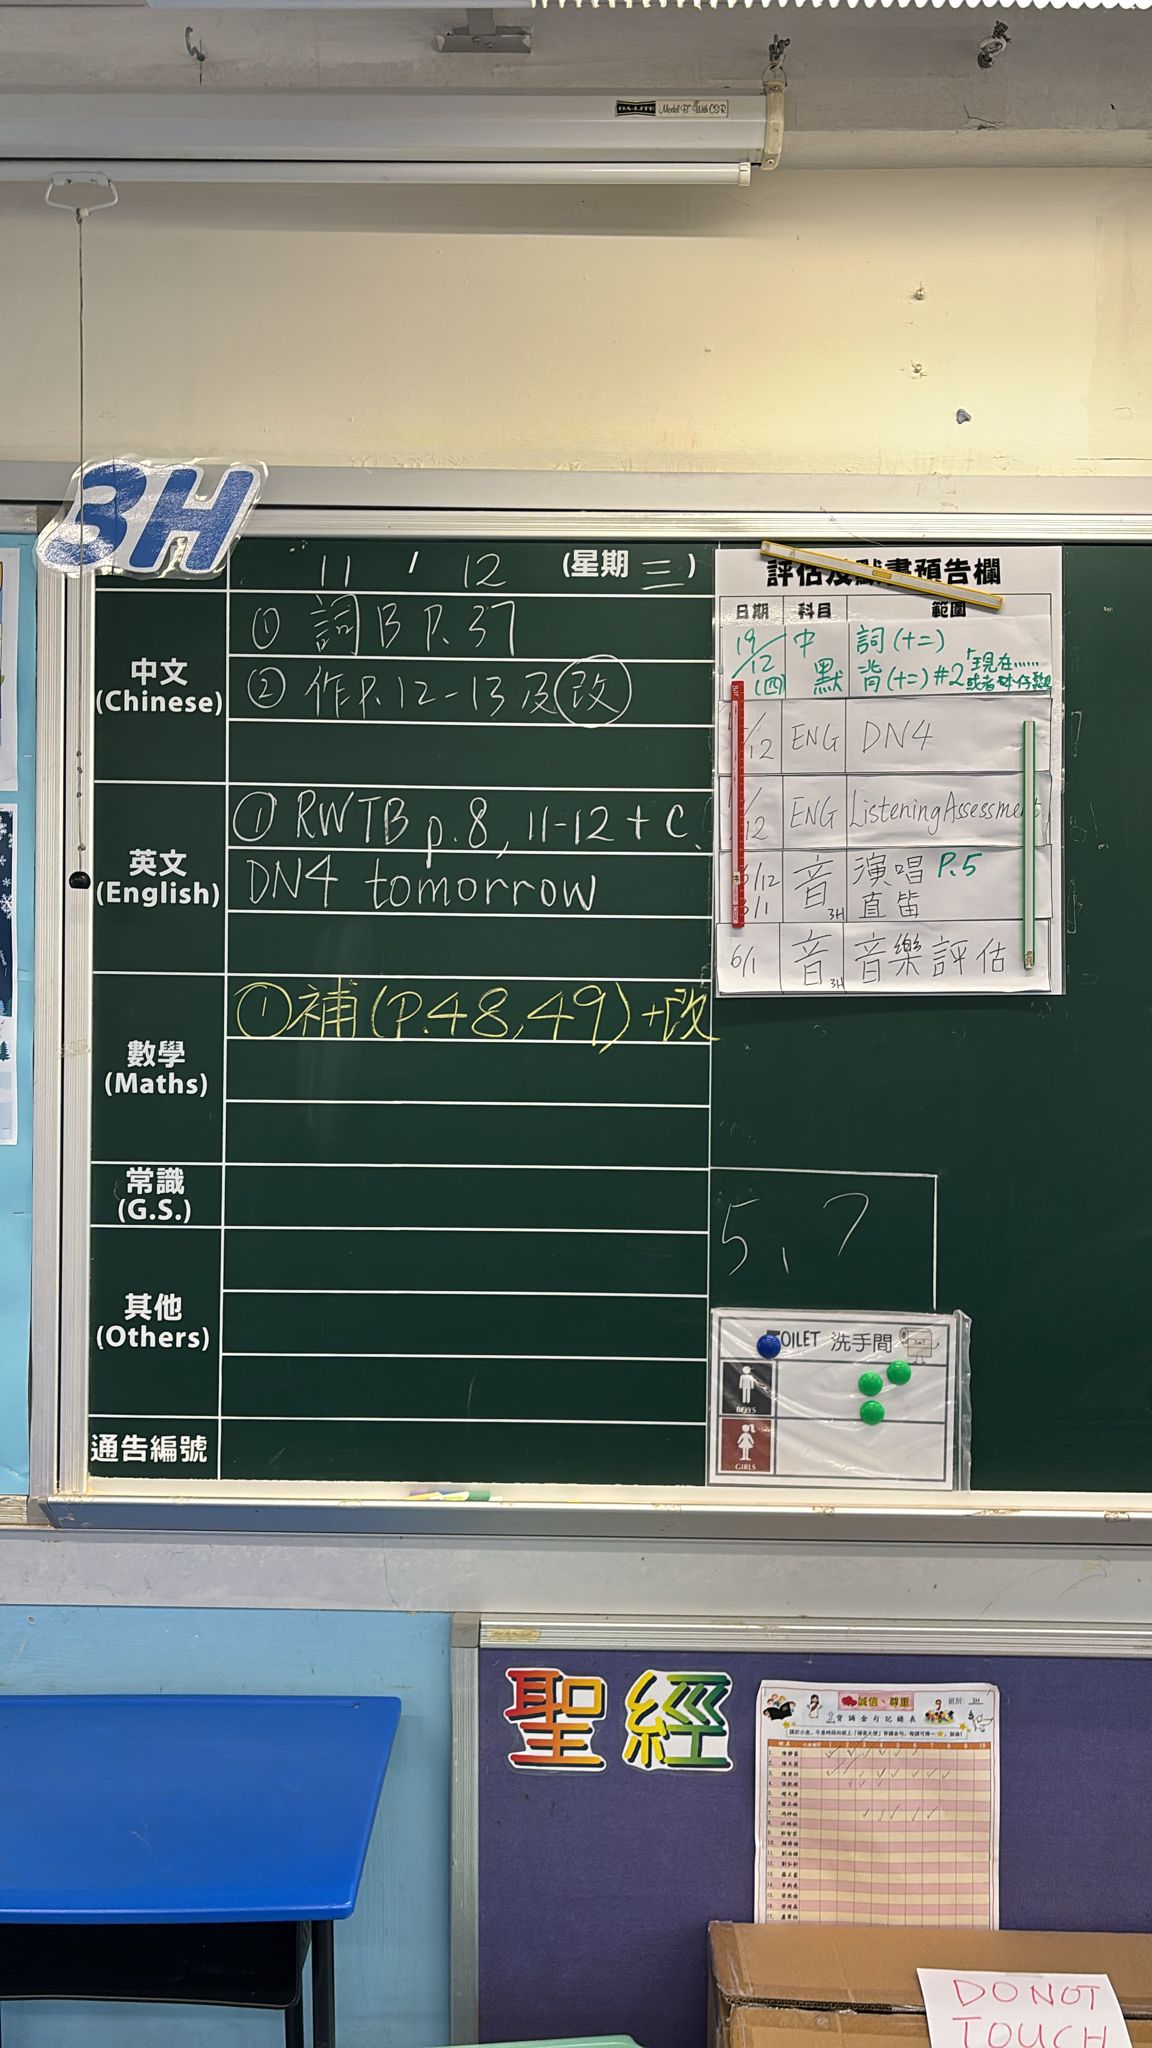 DA-LITE Model B With CSR
3H
11 / 12 (星期 三)
中文
(Chinese)
① 詞B P.37
② 作P.12-13及改
英文
(English)
① RWTB p.8, 11-12 + C
DN4 tomorrow
數學
(Maths)
① 補(P.48,49)+改
常識
(G.S.)
其他
(Others)
通告編號
評估及默書預告欄
日期 科目 範圍
19/12 (四) 中默 詞(十二)
背(十二)#2「現在……
或者
/12 ENG DN4
/12 ENG Listening Assessment
/12 音 3H 演唱 P.5
/1 直笛
6/1 音 3H 音樂評估
5、7
TOILET 洗手間
BOYS
GIRLS
聖經
誠信、尊重
班別 3H
背誦金句記錄表
1 2 3 4 5 6 7 8 9 10
DO NOT
TOUCH